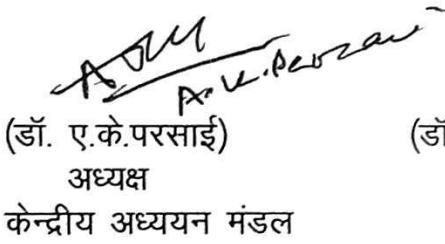 A.K.Parsai
(डॉ. ए.के.परसाई) (डॉ
अध्यक्ष
केन्द्रीय अध्ययन मंडल